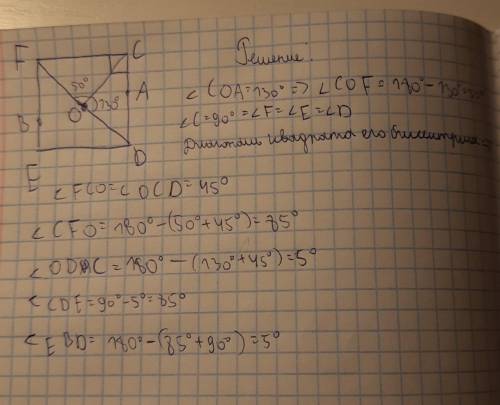 F C
50°
A
130°
B O
E D
Решение:
∠COA=130° => ∠COF = 180° - 130° = 50°
∠C=90° = ∠F = ∠E = ∠D
Диагональ квадрата его биссектриса =>
∠FCO=∠OCD=45°
∠CFO=180°-(50°+45°)=85°
∠ODAC=180°-(130°+45°)=5°
∠CDE=90°-5°=85°
∠EBD=180°-(85°+90°)=5°